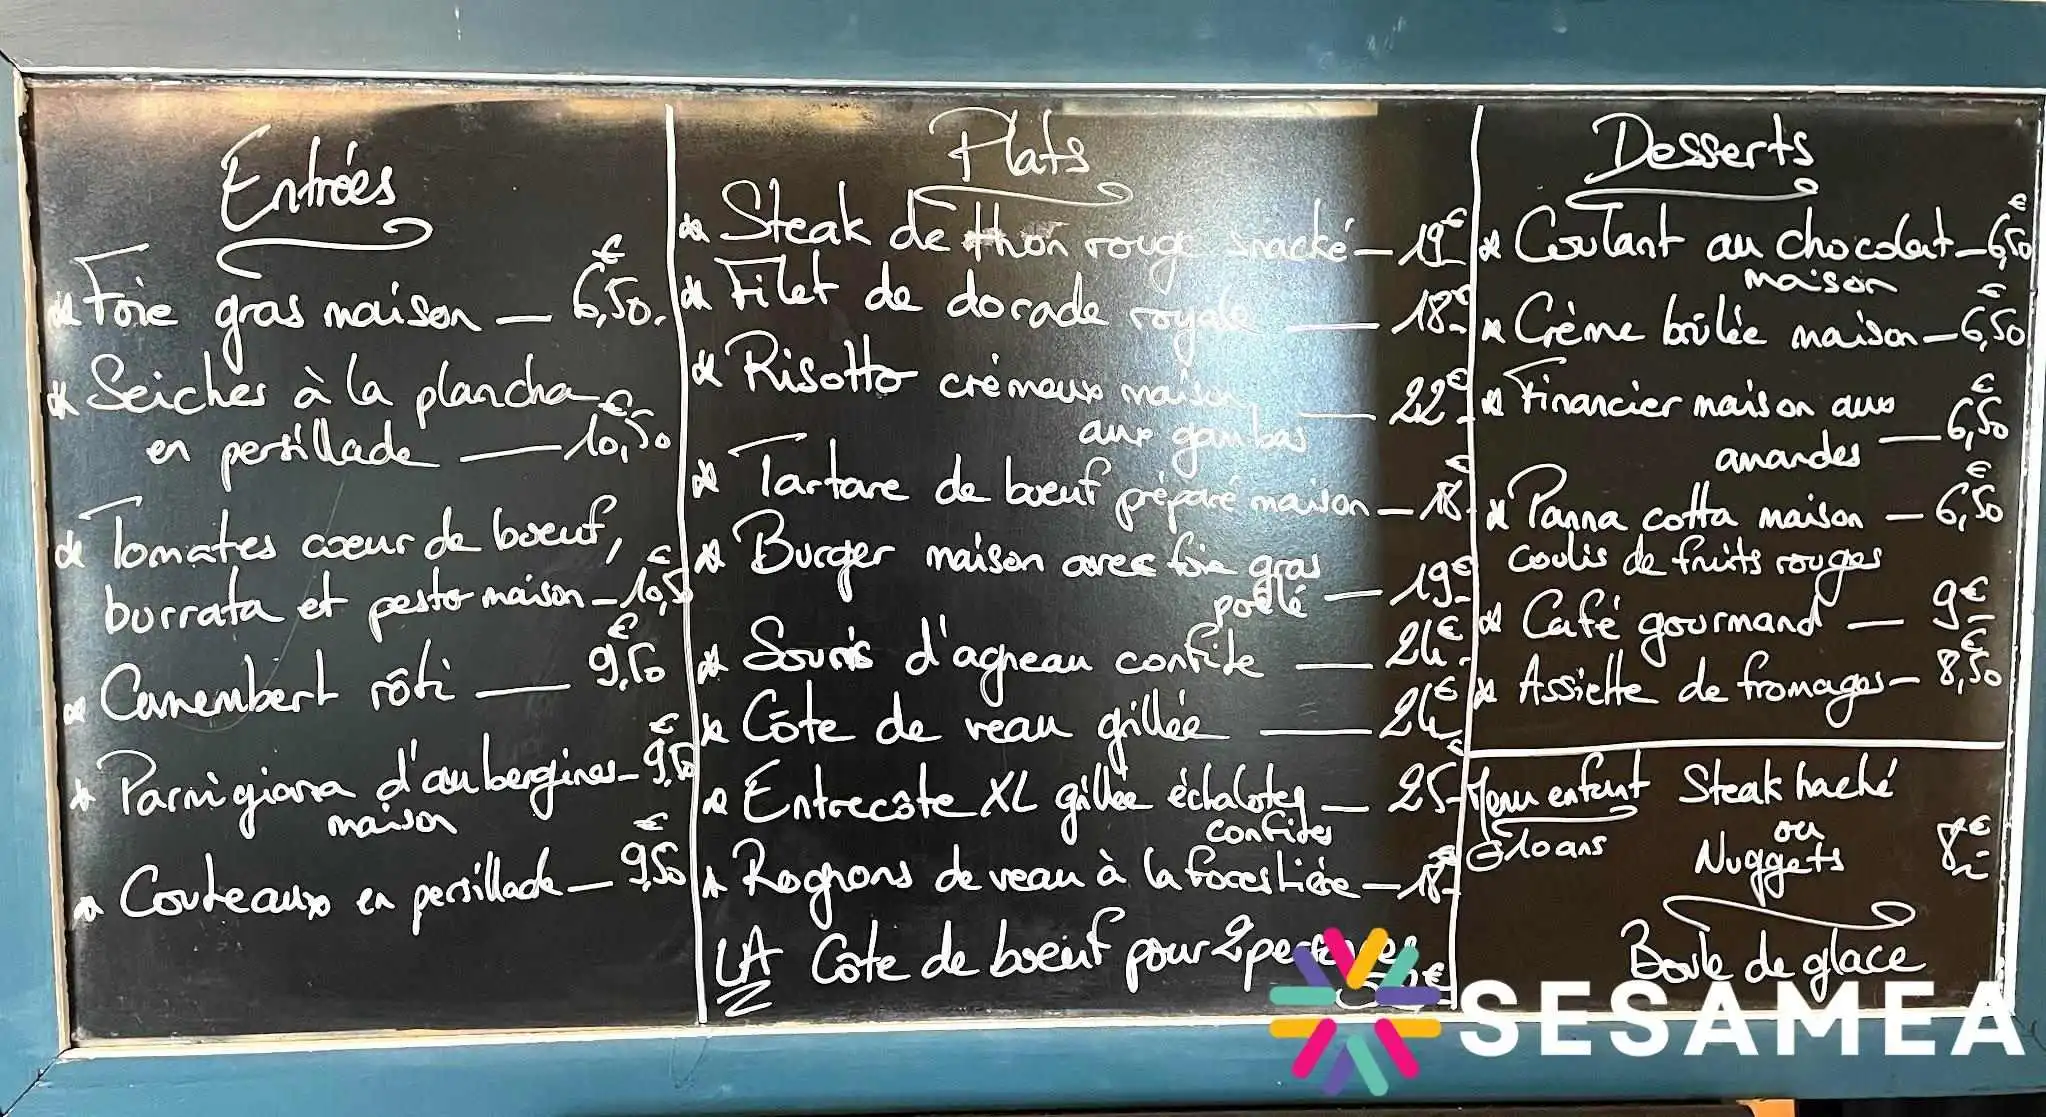 Entrées
Foie gras maison — 6,50€
Seiches à la plancha
en persillade — 10,50€
Tomates coeur de boeuf,
burrata et pesto maison — 10,5€
Camembert rôti — 9,50€
Parmigiana d'aubergines — 9,50€
maison
Couteaux en persillade — 9,50€
Plats
Steak de thon rouge snacké — 19€
Filet de dorade royale — 18€
Risotto crémeux maison,
aux gambas — 22€
Tartare de boeuf préparé maison — 18€
Burger maison avec foie gras
poêlé — 19€
Souris d'agneau confite — 24€
Côte de veau grillée — 24€
Entrecôte XL grillée échalotes — 25€
confites
Rognons de veau à la forestière — 18€
LA Côte de boeuf pour 2 personnes
€
Desserts
Coulant au chocolat — 6,50€
maison
Crème brûlée maison — 6,50€
Financier maison aux
amandes — 6,50€
Panna cotta maison — 6,50€
coulis de fruits rouges
Café gourmand — 9€
Assiette de fromages — 8,50€
Menu enfant Steak haché
10 ans ou
Nuggets 8€
Boule de glace
SESAMEA